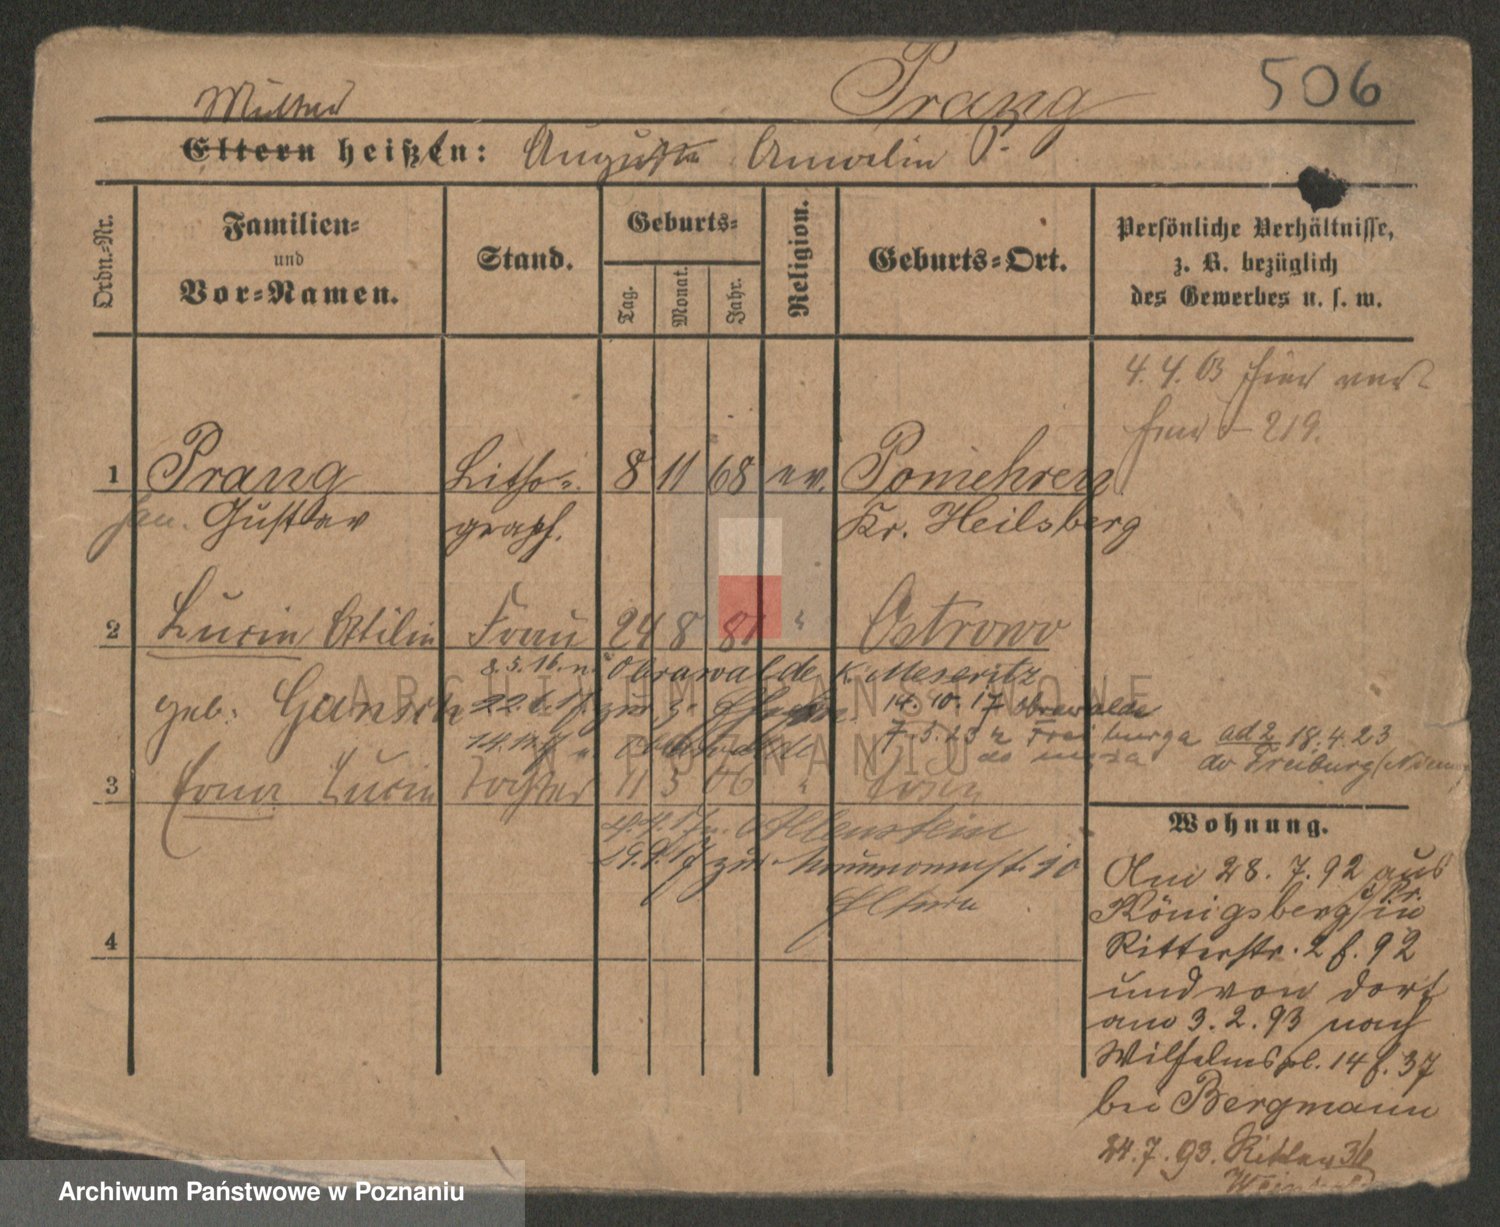 Prang 506
Mutter
Eltern heißen: Auguste Amalie P.
Ordn.-Nr.
Familien-
und
Vor-Namen.
Stand.
Geburts-
Tag.
Monat.
Jahr.
Religion.
Geburts-Ort.
Persönliche Verhältnisse,
z. B. bezüglich
des Gewerbes u. s. w.
4. 4. 03 hier
219.
1 Prang Litho- 8 11 68 ev. Pomehren
Gustav graph. Kr. Heilsberg
2 Lucie Ottilie Frau 24 8 81 " Ostrowo
8.5.16. n. Obrawalde K. Meseritz
geb. 14.10.17 Obrawalde
7.5.23 z Freiburga ad 2 18.4.23
do męża do Freiburg
3 Erna Lucie Tochter 11 5 06 " Posen
Allenstein
zur 10
Eltern
4
Wohnung.
Am 28. 7. 92 aus
Königsberg i. Pr. in
Ritterstr. 2 b. 92
und von dort
am 3. 2. 93 nach
Wilhelmspl. 14 b. 37
bei Bergmann
24. 7. 93. Ritter 36
ARCHIWUM PAŃSTWOWE
W POZNANIU
Archiwum Państwowe w Poznaniu